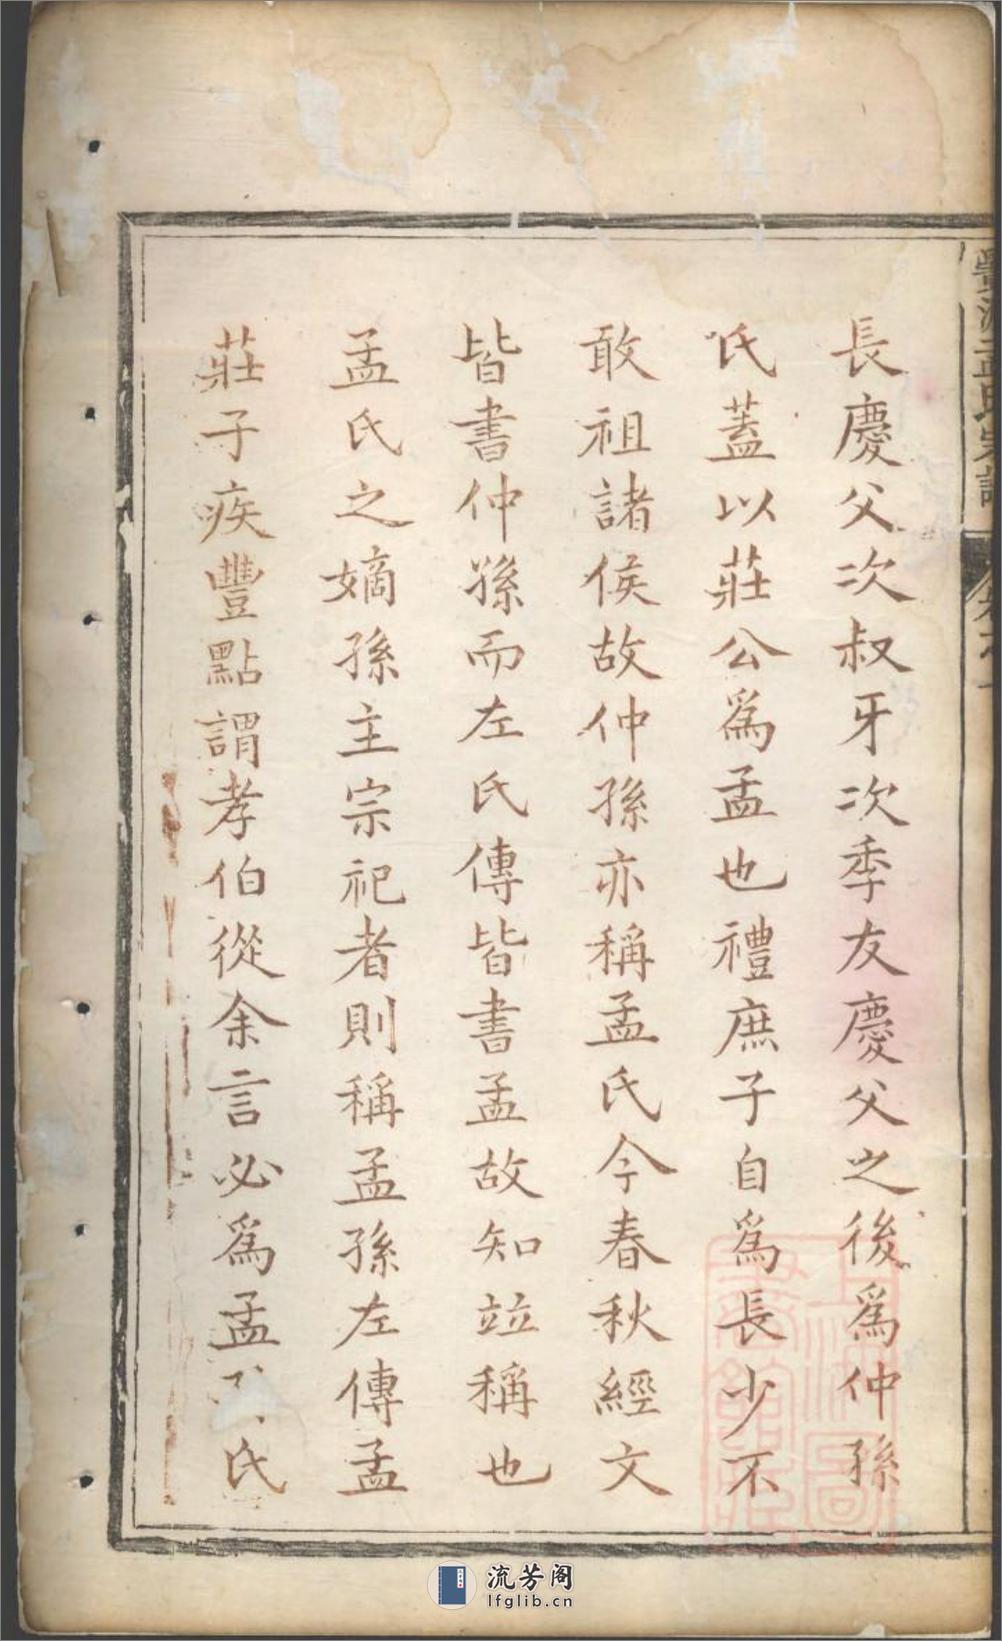 長慶父次叔牙次季友慶父之後爲仲孫
氏蓋以莊公爲孟也禮庶子自爲長少不
敢祖諸侯故仲孫亦稱孟氏今春秋經文
皆書仲孫而左氏傳皆書孟故知竝稱也
孟氏之嫡孫主宗祀者則稱孟孫左傳孟
莊子疾豐點謂孝伯從余言必爲孟氏
上海圖書館藏
流芳阁
lfglib.cn